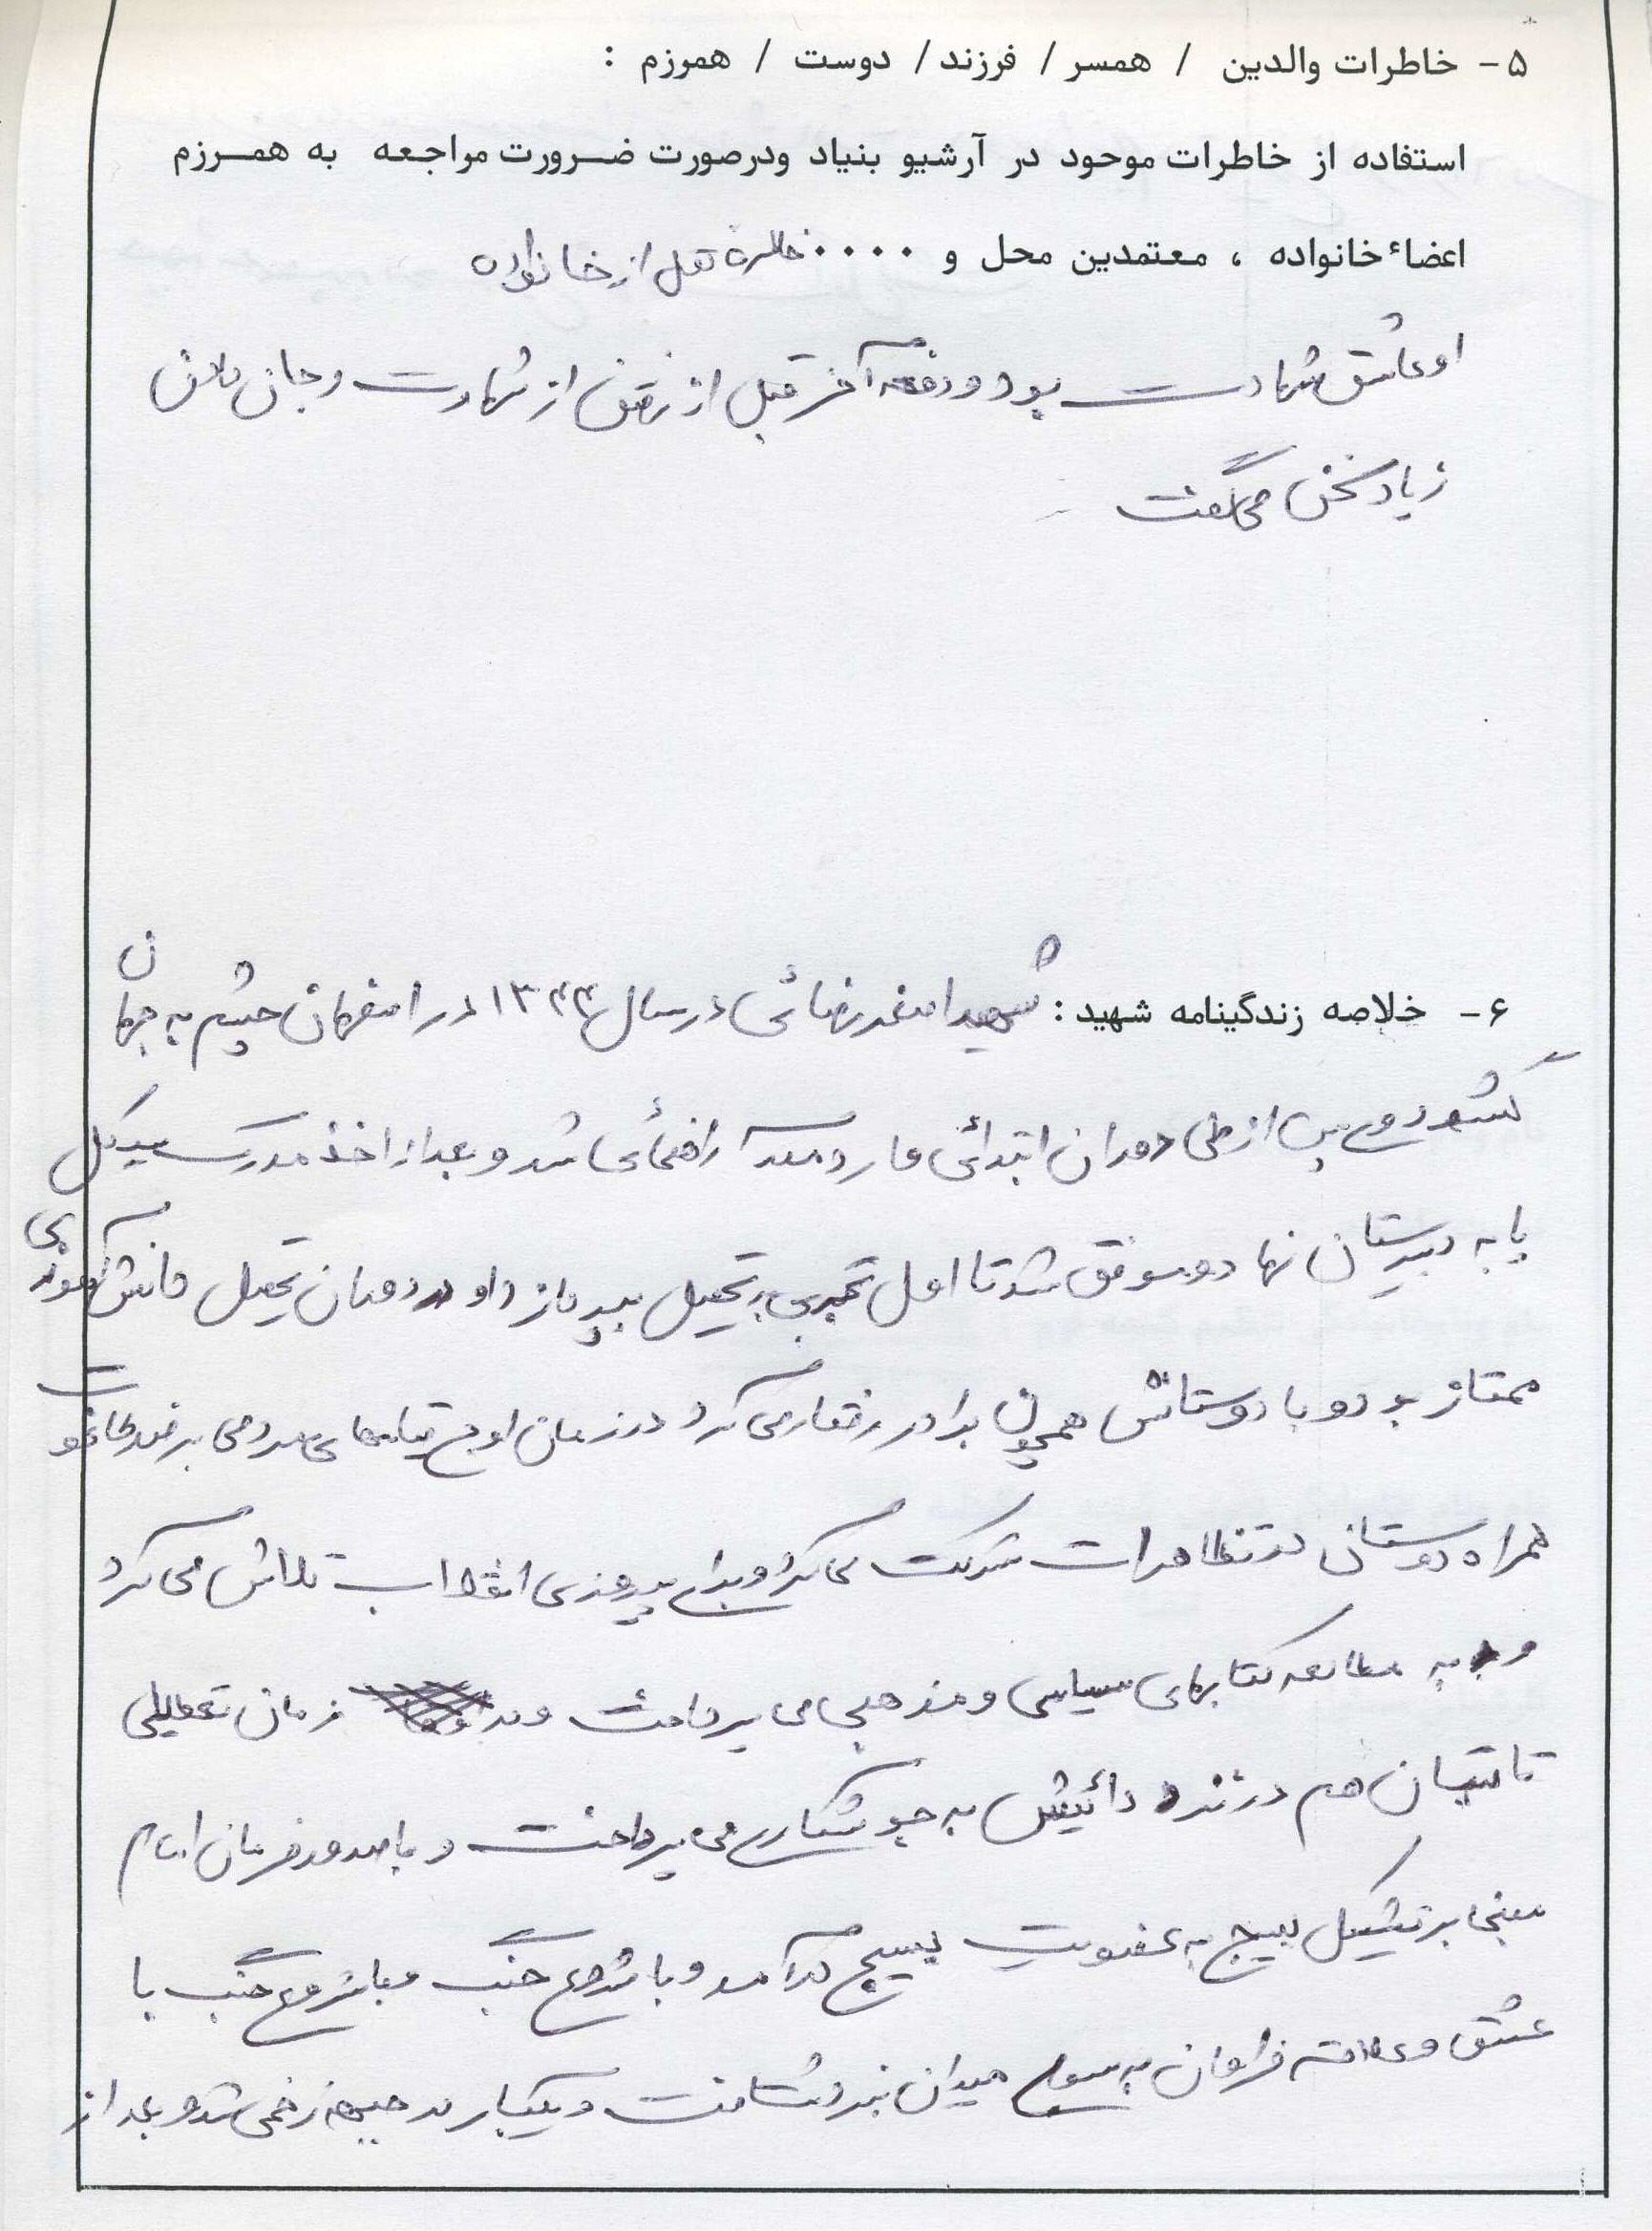 ۵- خاطرات والدین / همسر / فرزند / دوست / همرزم :
استفاده از خاطرات موحود در آرشیو بنیاد ودرصورت ضرورت مراجعه به همرزم
اعضاء خانواده ، معتمدین محل و ۰۰۰۰ خاطره نقل از خانواده
او عاشق شهادت بود و دفعه آخر قبل از رفتن از شهادت و جان دادن
زیاد سخن می گفت
۶- خلاصه زندگینامه شهید : شهید اصغر رضائی در سال ۱۳۴۴ در اصفهان چشم به جهان
گشود وی پس از طی دوران ابتدائی وارد مدرسه راهنمائی شد و بعد از اخذ مدرک سیکل
پا به دبیرستان نهاد و موفق شد تا اول تجربی به تحصیل بپردازد او در دوران تحصیل دانش آموزی
ممتاز بود و با دوستانش همچون برادر رفتار می کرد در زمان اوج قیامهای مردمی بر ضد طاغوت
همراه دوستانی در تظاهرات شرکت می کرد و برای پیروزی انقلاب تلاش می کرد
و به مطالعه کتابهای سیاسی و مذهبی می پرداخت و در زمان تعطیلی
تابستان هم در نزد دائیش به جوشکاری می پرداخت و با صدور فرمان امام
مبنی بر تشکیل بسیج به عضویت بسیج درآمد و با شروع جنگ و با شروع جنگ با
عشق و علاقه فراوان به سوی میدان نبرد شتافت و یکبار در جبهه زخمی شد و بعد از